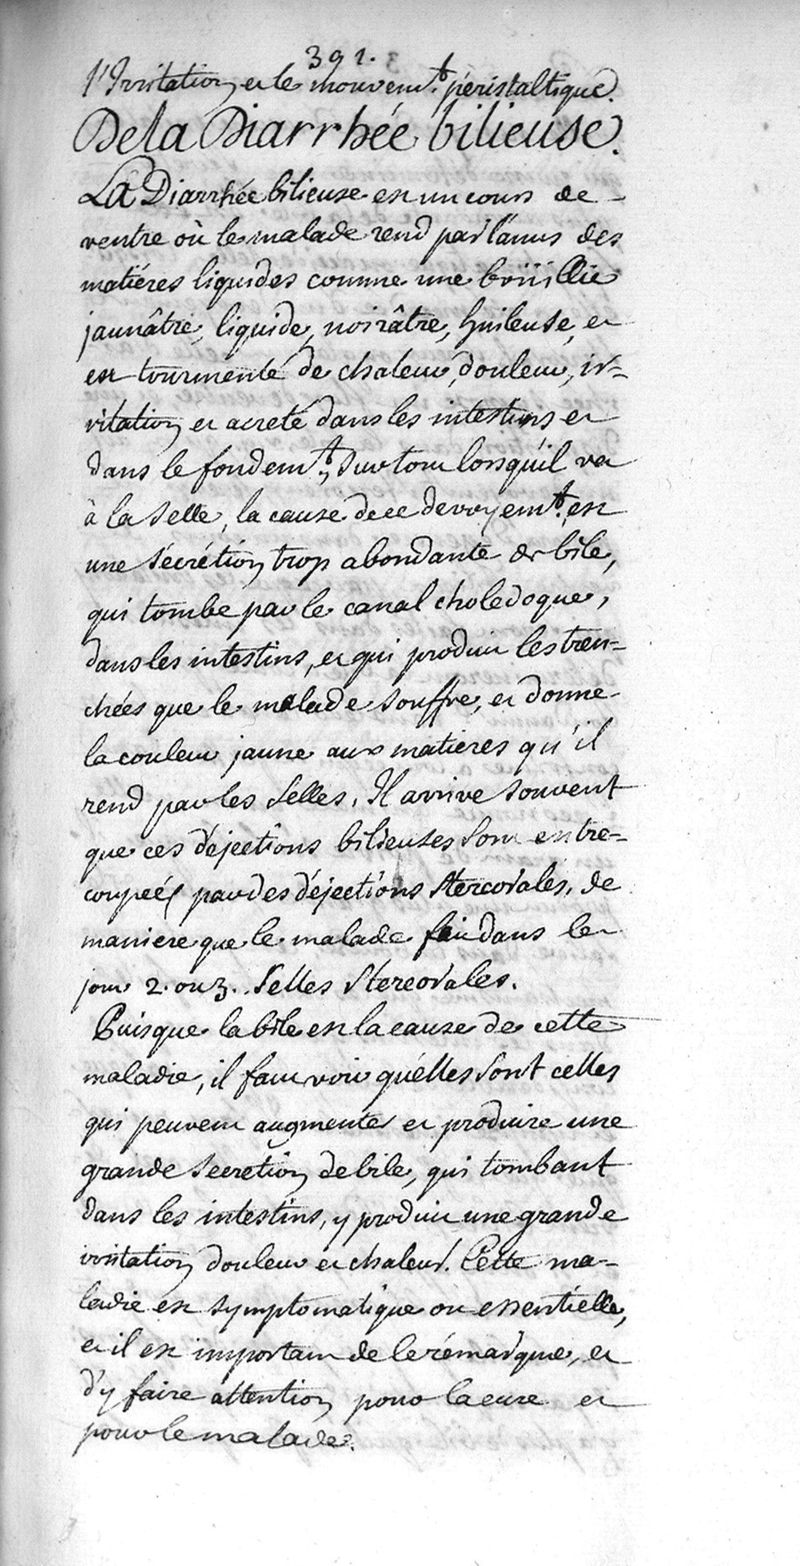 391.
l'Irritation et le mouvem.t péristaltique.
De la Diarrhée bilieuse.
La Diarrhée bilieuse est un cours de
ventre où le malade rend par l'anus des
matiéres liquides comme une boüillie
jaunâtre, liquide, noirâtre, huileuse, et
est tourmenté de chaleur, douleur, ir-
ritation et acreté dans les intestins et
dans le fondem.t, surtout lorsqu'il va
à la selle, la cause de ce devoyem.t, est
une sécrétion trop abondante de bile,
qui tombe par le canal choledoque,
dans les intestins, et qui produit les tren-
chées que le malade souffre, et donne
la couleur jaune aux matieres qu'il
rend par les selles. Il arrive souvent
que ces déjections bilieuses sont entre-
coupées par des déjections stercorales, de
maniere que le malade fait dans le
jour 2. ou 3. selles stercorales.
Puisque la bile est la cause de cette
maladie, il faut voir qu'elles sont celles
qui peuvent augmenter et produire une
grande secretion de bile, qui tombant
dans les intestins, y produit une grande
irritation douleur et chaleur. Cette ma-
ladie est symptomatique ou essentielle,
et il est important de le rémarquer, et
d'y faire attention pour la cure et
pour le malade.